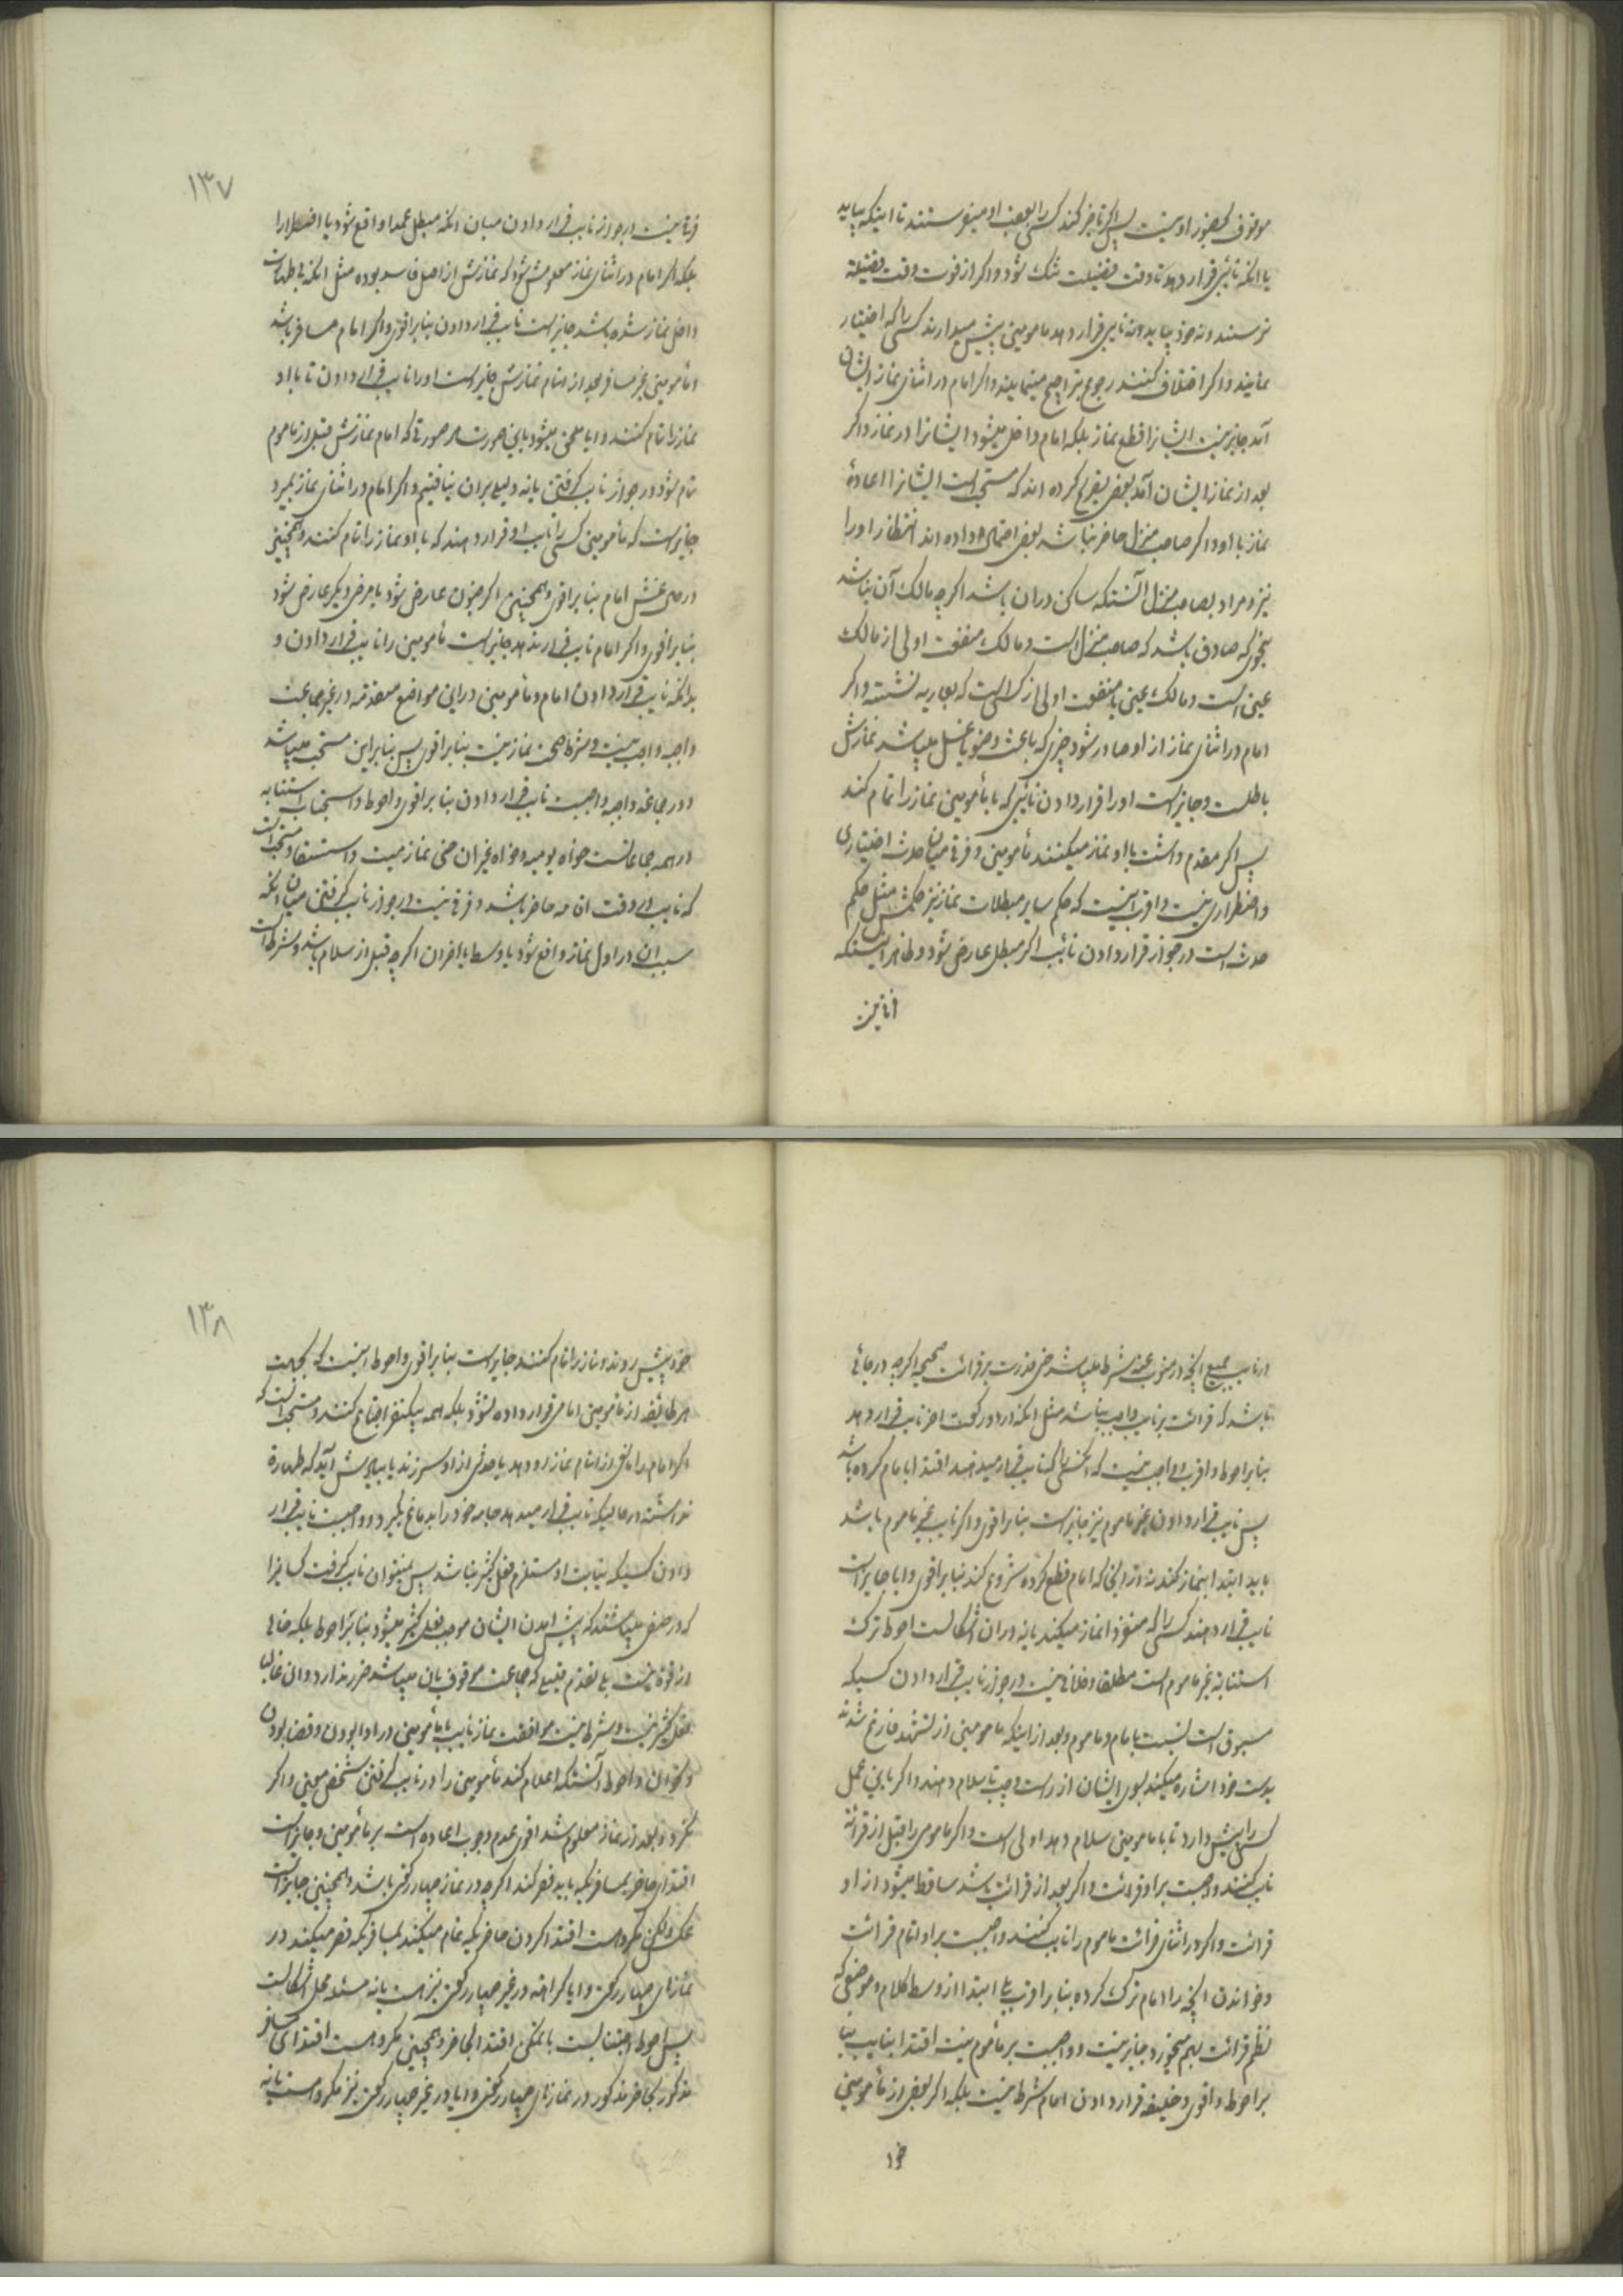 موقوف بحضور او نیست پس اگر تاخیر کند کسی را بعقب او میفرستند تا اینکه بیاید
یا آنکه نائبی قرار دهد تا وقت فضیلت تنک نشود و اگر از فوت وقت فضیلة
ترسند و نه خود بیاید و نه نایبی قرار دهد مامومین پیش میدارند کسی را که اختیار
نمایند و اگر اختلاف کنند رجوع بتراجیح مینمایند و اگر امام در اثنای نماز ایشان
آمد جایز نیست ایشانرا قطع نماز بلکه امام داخل میشود ایشانرا در نماز و اگر
بعد از نماز ایشان آمد بعض تصریح کرده اند که مستحب است ایشانرا اعادۀ
نماز با او و اگر صاحب منزل حاضر نباشد بعض احتمال داده اند انتظار او را
نیز و مراد بصاحب منزل آنستکه ساکن در ان باشد اگر چه مالک آن نباشد
بنحوی که صادق باشد که صاحب منزل است و مالک منفعت اولی از مالک
عین است و مالک عین یا منفعت اولی از کسی است که بعاریه نشسته و اگر
امام در اثنای نماز از او صادر شود چیزی که باعث وضو یا غسل میباشد نمازش
باطلست و جایز است او را قرار دادن نائبی که با مأمومین نماز را تمام کند
پس اگر مقدم داشت با او نماز میکنند مأمومین و فرقی میان حدث اختیاری
و اضطراری نیست و اقرب اینست که حکم سایر مبطلات نماز نیز حکمش مثل حکم
حدث است در جواز قرار دادن نائب اگر مبطل عارض شود و ظاهر اینستکه
فرقی نیست در جواز نایب قرار دادن میان انکه مبطل عمدا واقع شود یا اضطرارا
۱۳۷
بلکه اگر امام در اثنای نماز معلومش شود که نمازش از اصل فاسد بوده مثل انکه بی طهارت
داخل نماز شده باشد جایز است نایب قرار دادن بنابر اقوی و اگر امام مسافر باشد
و مأمومین غیر مسافر بعد از اتمام نمازش جایز است او را نایب قرار دادن تا با او
نماز را تمام کنند و ایا ملحق میشود باین صورت هر صورتی که امام نمازش قبل از ماموم
تمام شود در جواز نایب گرفتن یا نه دلیلی بران نیافتیم و اگر امام در اثنای نماز بمیرد
جایز است که مأمومین کسی را نایب او قرار دهند که با او نماز را تمام کنند و همچنین
در صورت غش امام بنابر اقوی و همچنین اگر جنون عارض شود یا مرض دیگر عارض شود
بنابر اقوی و اگر امام نایب قرار ندهد جایز است مأمومین را نایب قرار دادن و
بدانکه نایب قرار دادن امام و مأمومین در این مواضع متقدمه در غیر جماعت
واجبه واجب نیست و شرط صحت نماز نیست بنابر اقوی پس بنابر این مستحب میباشد
و در جماعة واجبه واجبست نایب قرار دادن بنابر اقوی و احوط و استحباب استنابه
در همه جماعاتست خواه یومیه و خواه غیر ان حتی نماز میت و مستحب است
که نایب در وقت اقامه حاضر باشد و فرقی نیست در جواز نایب گرفتن میان انکه
سبب ان در اول نماز واقع شود یا وسط یا اخر ان اگر چه قبل از سلام باشد و شرط است
در نایب جمیع انچه در منوب عنه شرط میباشد حتی قدرت بر قرائت صحیحه اگر چه در جائی
باشد که قرائت بر نایب واجب نباشد مثل انکه در دو رکعت اخر نایب قرار دهد
بنابر احوط و اقرب و واجب نیست که انکسی را که نایب قرار میدهند اقتدا بامام کرده باشد
پس نایب قرار دادن غیر ماموم نیز جایز است بنابر اقوی و اگر نایب غیر ماموم باشد
باید ابتدا بنماز کند نه از انجا که امام قطع کرده شروع کند بنابر اقوی و ایا جایز است
نایب قرار دهند کسی را که منفردا نماز میکند یا نه در ان اشکالست احوط ترک
استنابه غیر ماموم است مطلقا و خلافی نیست در جواز نایب قرار دادن کسیکه
مسبوق است نسبت بامام و ماموم و بعد از اینکه مامومین از تشهد فارغ شدند
بدست خود اشاره میکند بسوی ایشان از راست و چپ تا سلام دهند و اگر باین عمل
کسی را پیش دارد تا با مامومین سلام دهد اولی است و اگر مامومی را قبل از قرائة
نایب کنند واجبست بر او قرائت و اگر بعد از قرائت باشد ساقط میشود از او
قرائت و اگر در اثنای قرائت ماموم را نایب کنند واجبست بر او اتمام قرائت
و خواندن انچه را امام ترک کرده بنابر اقرب بلی ابتدا از وسط کلام و موضعی که
نظم قرائت بهم میخورد جایز نیست و واجب بر مأموم نیست اقتدا بنایب بنا
بر احوط و اقوی و خلیفه قرار دادن امام شرط نیست بلکه اگر بعض از مأمومین
خود
خود پیش روند و نماز را تمام کنند جایز است بنابر اقوی و احوط اینست که بجهت
۱۳۸
هر طائفه از مأمومین امامی قرار داده نشود بلکه همه بیکنفر اجتماع کنند و مستحب است که
اگر امام را مانعی از اتمام نماز رو دهد یا حدثی از او سر زند یا بیادش آید که طهارة
نداشته در حالیکه نایب قرار میدهد جامه خود را بدماغ بگیرد و واجبست نایب قرار
دادن کسیکه نیابت او مستلزم فعل کثیر نباشد پس نمیتوان نایب گرفت کسانیرا
که در صفی میباشند که پیش امدن ایشان موجب فعل کثیر میشود بنابر احوط بلکه خالی
از قوة نیست بلی تقدم قلیلی که جماعت موقوف بان میباشد ضرر ندارد و ان غالبا
فعل کثیر نیست و شرط نیست موافقت نماز نایب با مأمومین در ادا بودن و قضا بودن
و نحو ان و احوط آنستکه اعلام کند مأمومین را در نایب گرفتن شخص معین و اگر
نکرد و بعد از نماز معلوم شد اقوی عدم وجوب اعاده است بر مأمومین و جایز است
اقتدای حاضر بمسافریکه باید قصر کند اگر چه در نماز چهار رکعتی باشد و همچنین جایز است
عکس و لکن مکروهست اقتدا کردن حاضریکه تمام میکند بمسافریکه قصر میکند در
نمازهای چهار رکعتی و ایا کراهة در غیر چهار رکعتی نیز هست یا نه مسئله محل اشکالست
پس احوط اجتنابست با تمکن اقتدا بحاضر و همچنین مکروهست اقتدای مسافر
مذکور بحاضر مذکور در نمازهای چهار رکعتی و ایا در غیر چهار رکعتی نیز مکروهست یا نه